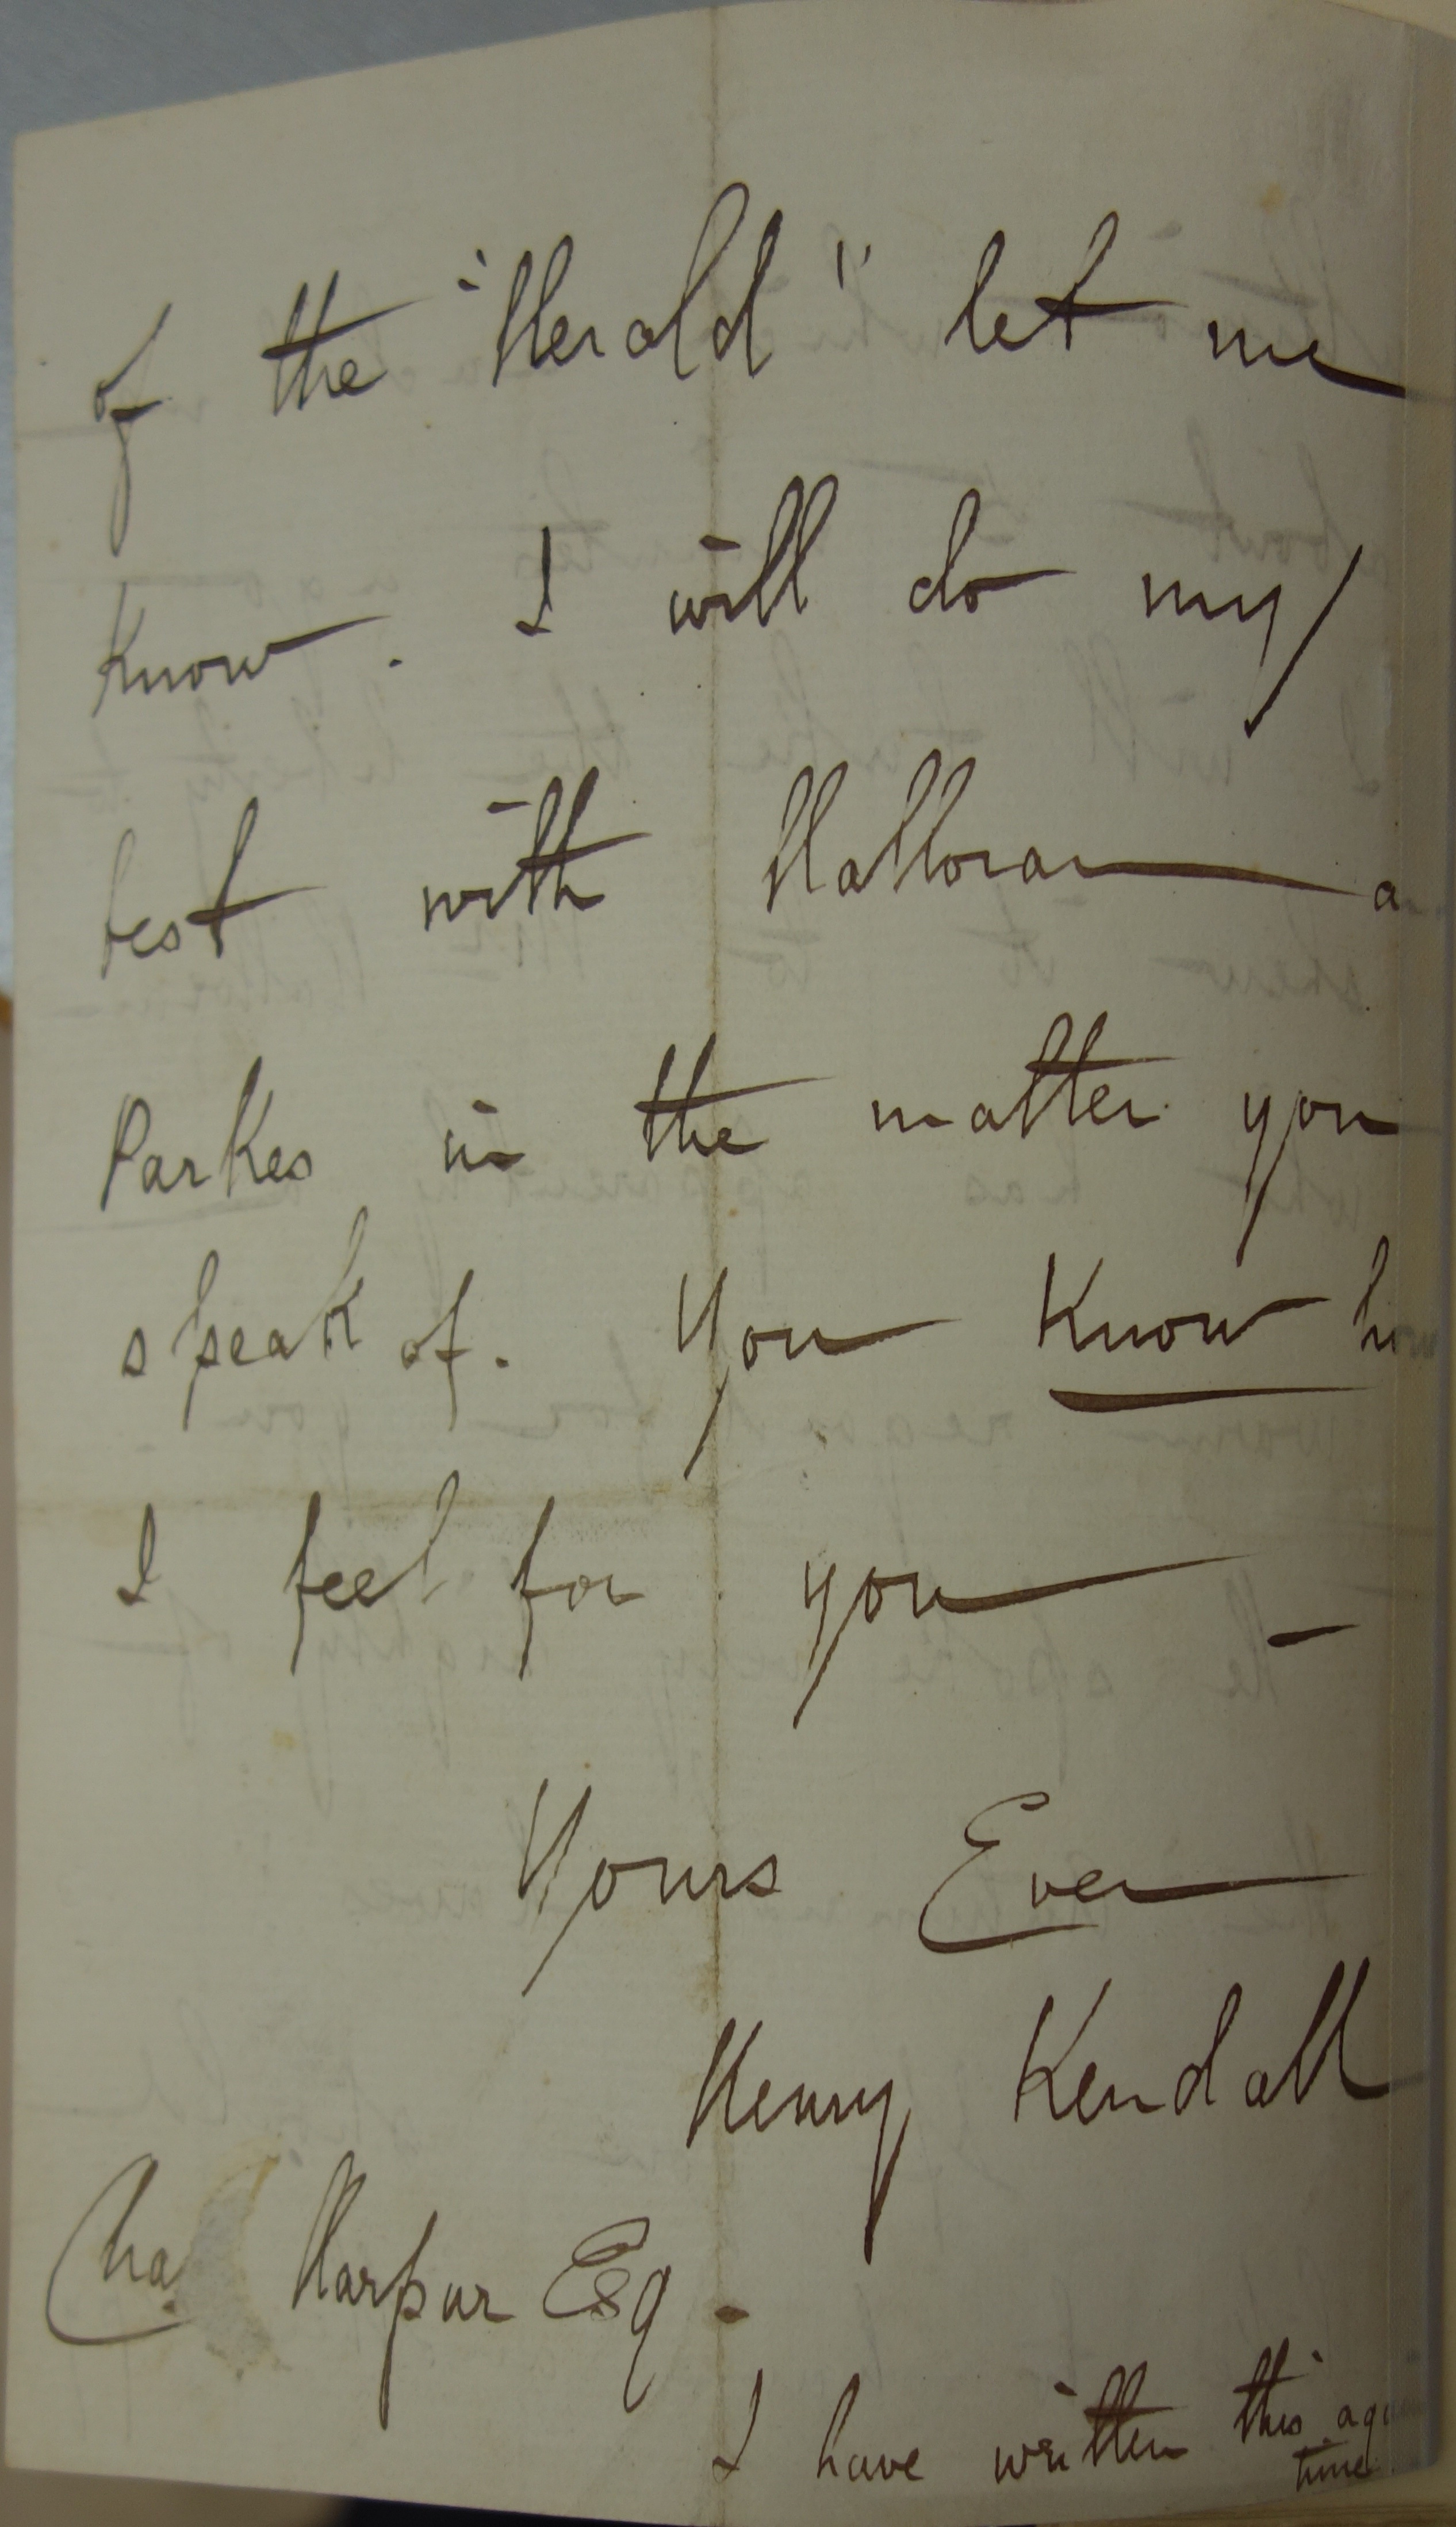 of the "Herald" let me
Know. I will do my
best with Halloran
Parkes in the matter you
speak of. You Know how
I feel for you —
Yours Ever
Henry Kendall
Cha Harpur Esq.
I have written this
time